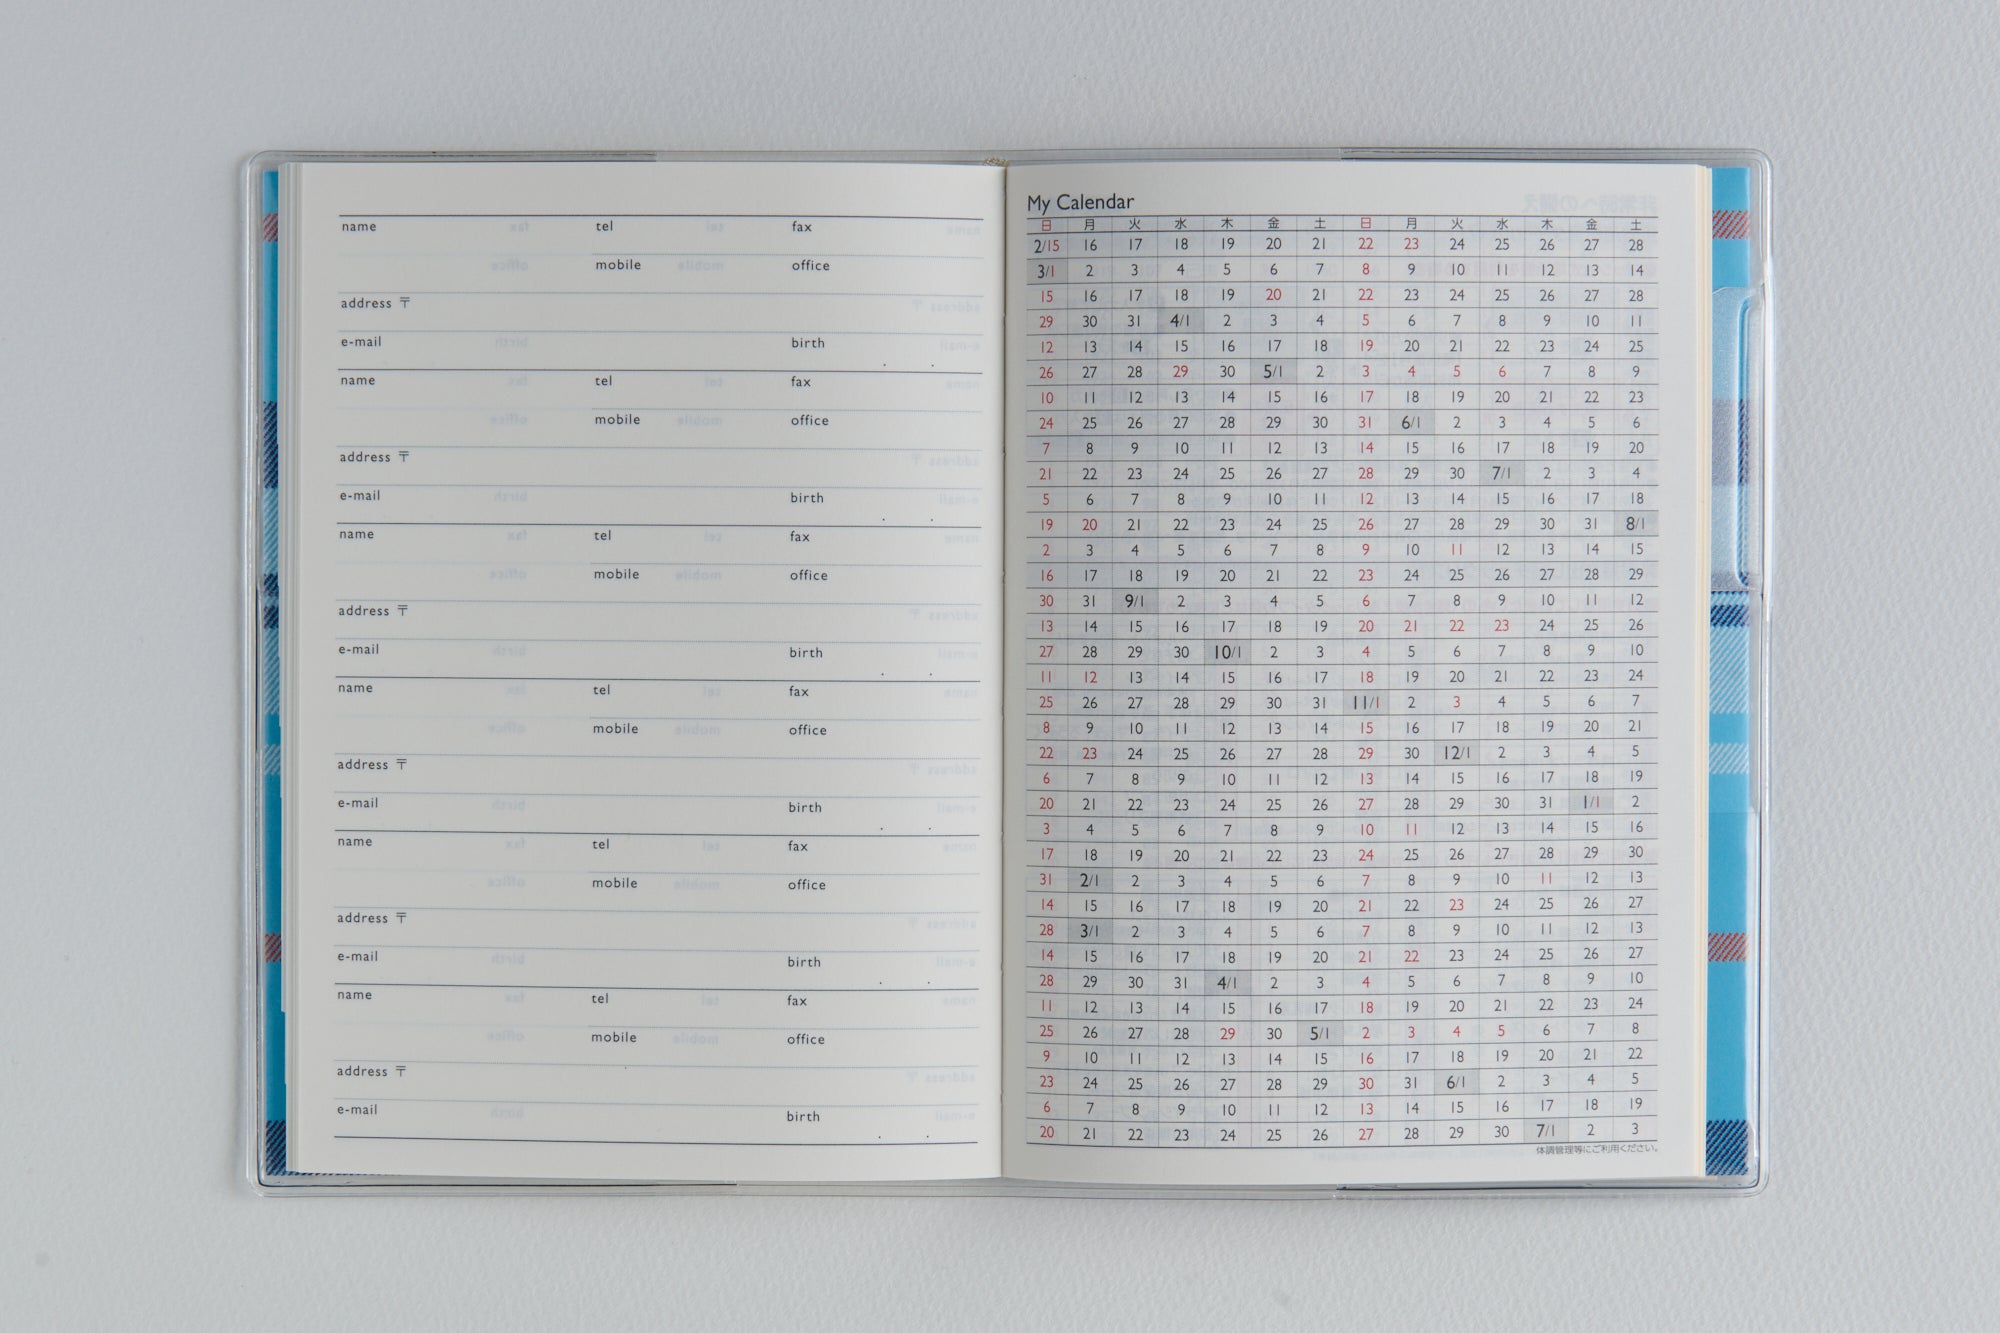 name tel fax
mobile office
address 〒
e-mail birth
. .
name tel fax
mobile office
address 〒
e-mail birth
. .
name tel fax
mobile office
address 〒
e-mail birth
. .
name tel fax
mobile office
address 〒
e-mail birth
. .
name tel fax
mobile office
address 〒
e-mail birth
. .
name tel fax
mobile office
address 〒
e-mail birth
. .
My Calendar
日 月 火 水 木 金 土 日 月 火 水 木 金 土
2/15 16 17 18 19 20 21 22 23 24 25 26 27 28
3/1 2 3 4 5 6 7 8 9 10 11 12 13 14
15 16 17 18 19 20 21 22 23 24 25 26 27 28
29 30 31 4/1 2 3 4 5 6 7 8 9 10 11
12 13 14 15 16 17 18 19 20 21 22 23 24 25
26 27 28 29 30 5/1 2 3 4 5 6 7 8 9
10 11 12 13 14 15 16 17 18 19 20 21 22 23
24 25 26 27 28 29 30 31 6/1 2 3 4 5 6
7 8 9 10 11 12 13 14 15 16 17 18 19 20
21 22 23 24 25 26 27 28 29 30 7/1 2 3 4
5 6 7 8 9 10 11 12 13 14 15 16 17 18
19 20 21 22 23 24 25 26 27 28 29 30 31 8/1
2 3 4 5 6 7 8 9 10 11 12 13 14 15
16 17 18 19 20 21 22 23 24 25 26 27 28 29
30 31 9/1 2 3 4 5 6 7 8 9 10 11 12
13 14 15 16 17 18 19 20 21 22 23 24 25 26
27 28 29 30 10/1 2 3 4 5 6 7 8 9 10
11 12 13 14 15 16 17 18 19 20 21 22 23 24
25 26 27 28 29 30 31 11/1 2 3 4 5 6 7
8 9 10 11 12 13 14 15 16 17 18 19 20 21
22 23 24 25 26 27 28 29 30 12/1 2 3 4 5
6 7 8 9 10 11 12 13 14 15 16 17 18 19
20 21 22 23 24 25 26 27 28 29 30 31 1/1 2
3 4 5 6 7 8 9 10 11 12 13 14 15 16
17 18 19 20 21 22 23 24 25 26 27 28 29 30
31 2/1 2 3 4 5 6 7 8 9 10 11 12 13
14 15 16 17 18 19 20 21 22 23 24 25 26 27
28 3/1 2 3 4 5 6 7 8 9 10 11 12 13
14 15 16 17 18 19 20 21 22 23 24 25 26 27
28 29 30 31 4/1 2 3 4 5 6 7 8 9 10
11 12 13 14 15 16 17 18 19 20 21 22 23 24
25 26 27 28 29 30 5/1 2 3 4 5 6 7 8
9 10 11 12 13 14 15 16 17 18 19 20 21 22
23 24 25 26 27 28 29 30 31 6/1 2 3 4 5
6 7 8 9 10 11 12 13 14 15 16 17 18 19
20 21 22 23 24 25 26 27 28 29 30 7/1 2 3
体調管理等にご利用ください。